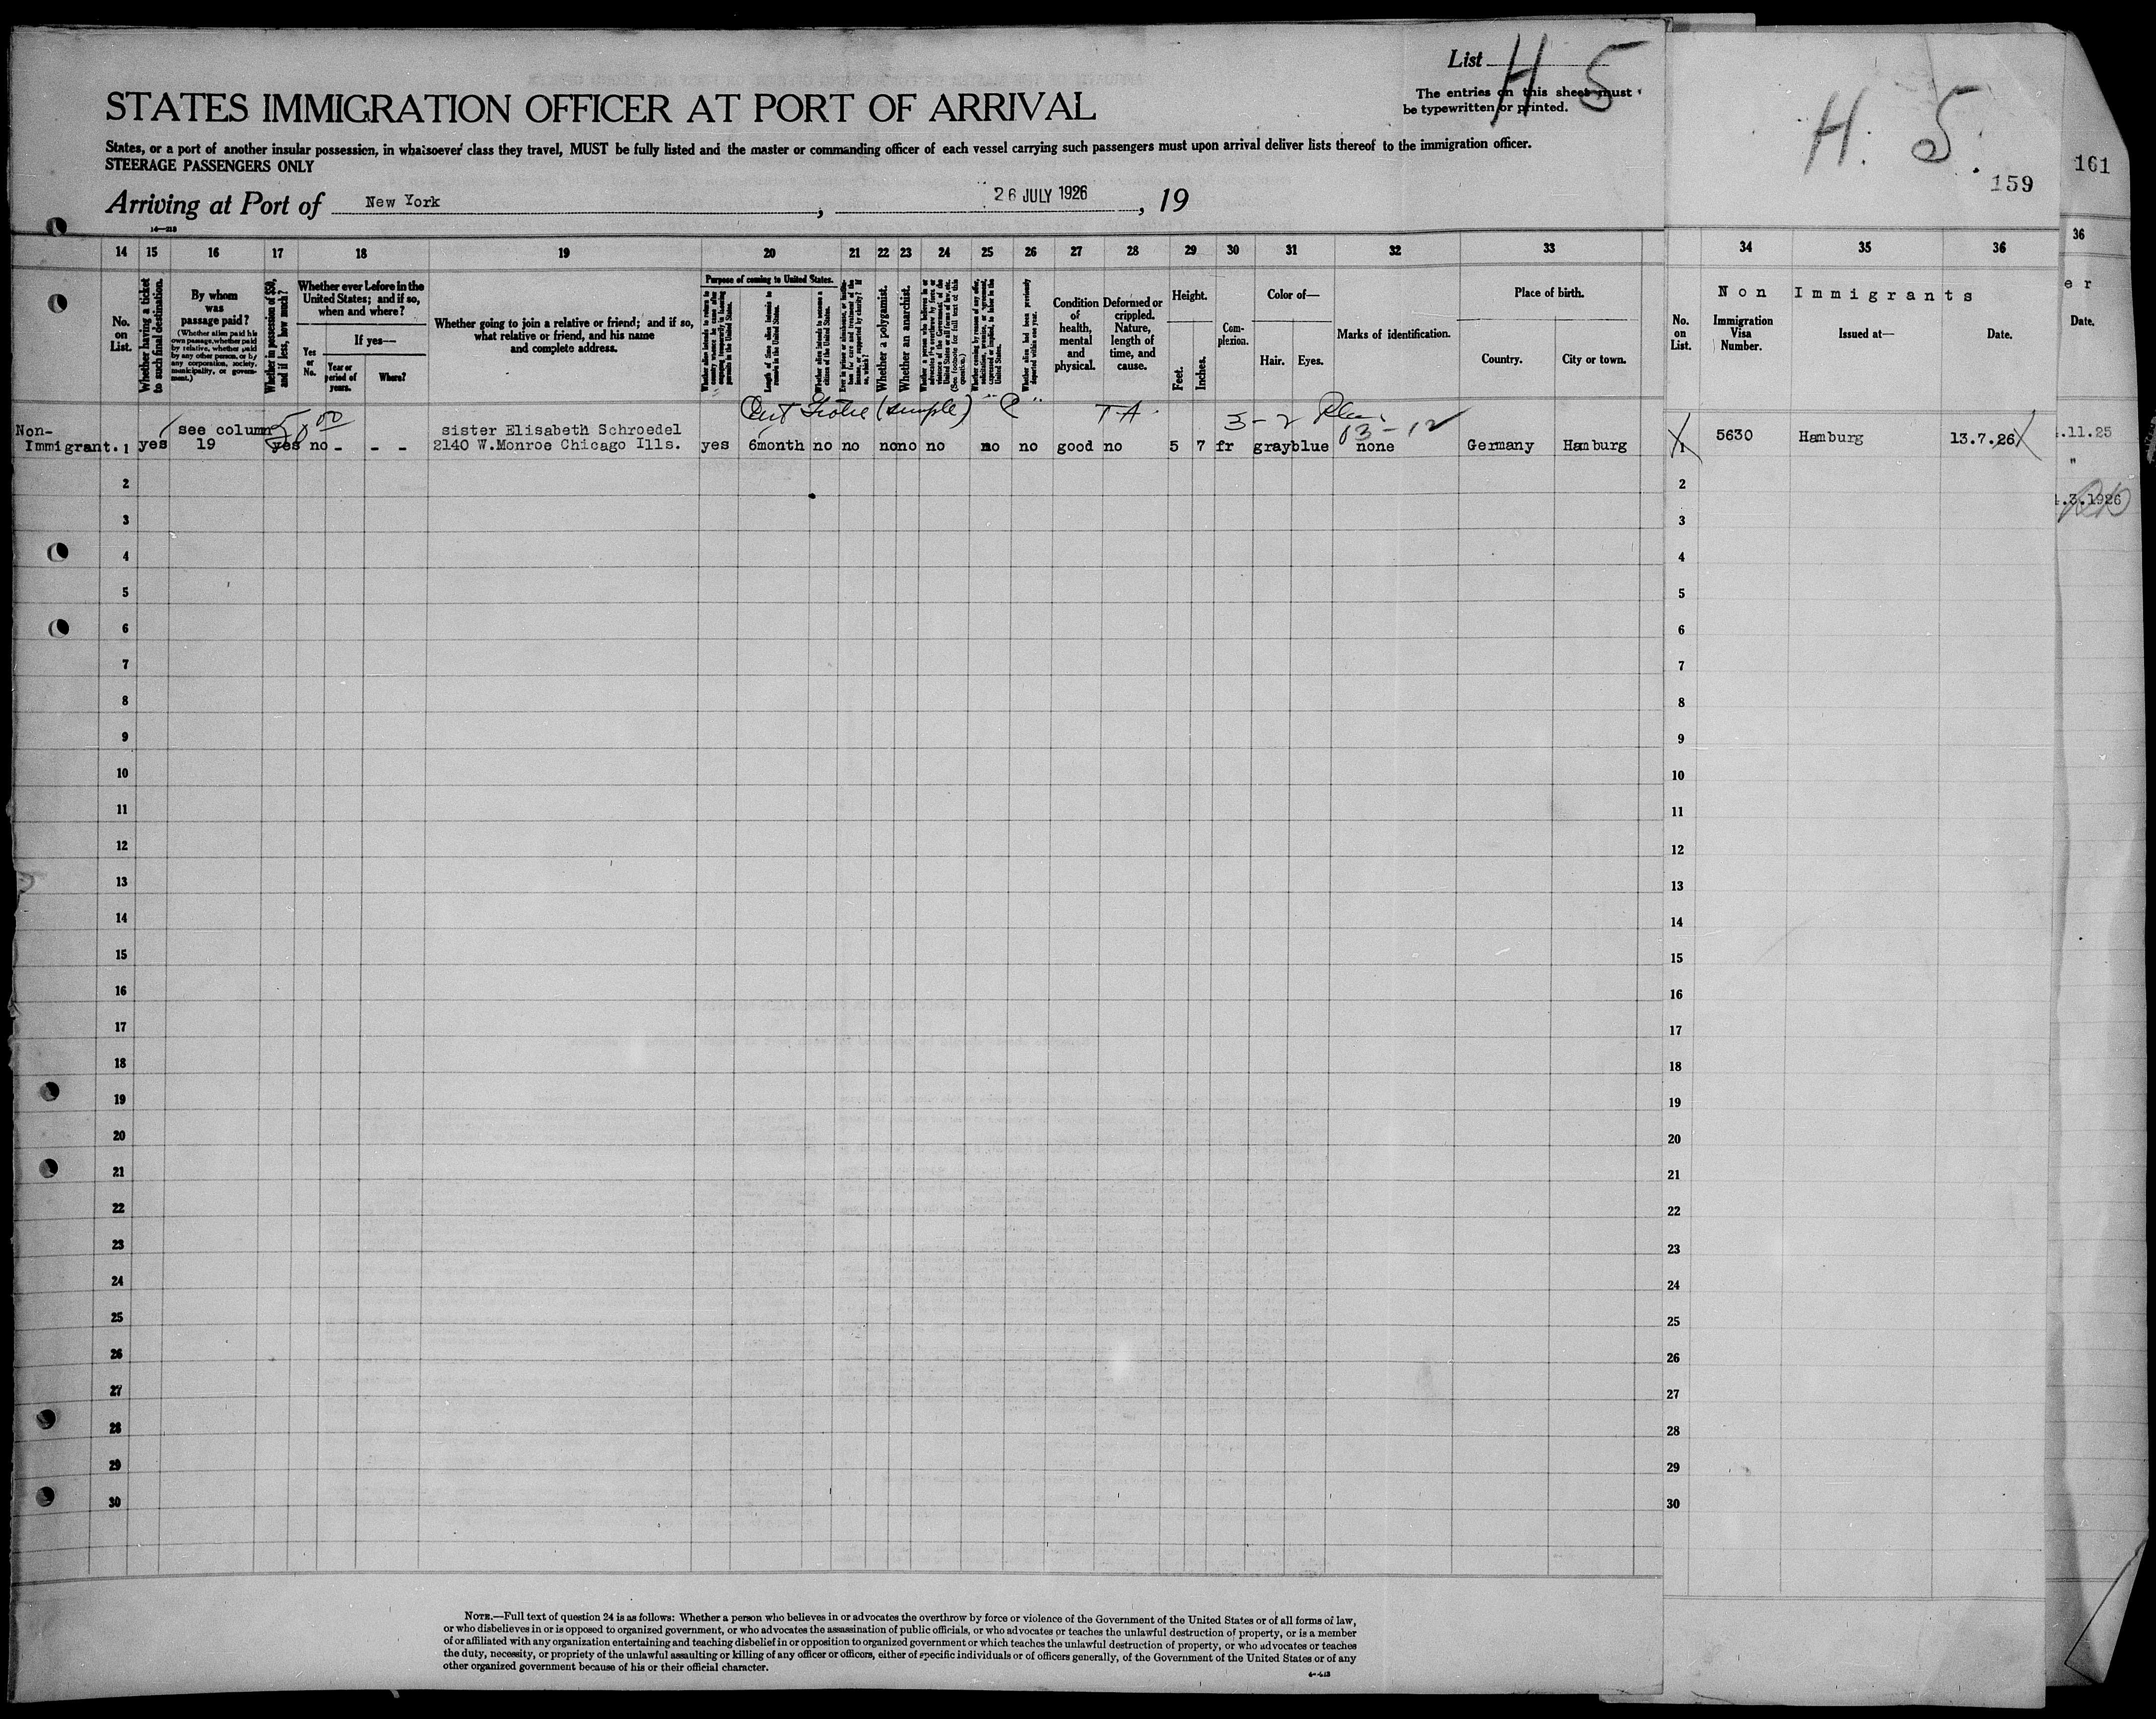 List H 5
The entries on this sheet must
be typewritten or printed.
STATES IMMIGRATION OFFICER AT PORT OF ARRIVAL
States, or a port of another insular possession, in whatsoever class they travel, MUST be fully listed and the master or commanding officer of each vessel carrying such passengers must upon arrival deliver lists thereof to the immigration officer.
STEERAGE PASSENGERS ONLY
Arriving at Port of New York, 26 JULY 1926, 19
H. 5.
159
161
14 15 16 17 18 19 20 21 22 23 24 25 26 27 28 29 30 31 32 33
34 35 36
36
No. on List.
Whether having a ticket to such final destination.
By whom was passage paid?
(Whether alien paid his own passage, whether paid by relative, whether paid by any other person, or by any corporation, society, municipality, or government.)
Whether in possession of $50, and if less, how much?
Whether ever before in the United States; and if so, when and where?
Yes or No.
If yes—
Year or period of years.
Where?
Whether going to join a relative or friend; and if so, what relative or friend, and his name and complete address.
Purpose of coming to United States.
Length of time alien intends to remain in the United States.
Whether alien intends to become a citizen of the United States.
Whether a polygamist.
Whether an anarchist.
Condition of health, mental and physical.
Deformed or crippled. Nature, length of time, and cause.
Height.
Feet.
Inches.
Complexion.
Color of—
Hair.
Eyes.
Marks of identification.
Place of birth.
Country.
City or town.
Non Immigrants
No. on List.
Immigration Visa Number.
Issued at—
Date.
er
Date.
(simple) "C" TA. 3-2
Non-
Immigrant. 1 yes see column 19 50.00 yes no - - - sister Elisabeth Schroedel
2140 W.Monroe Chicago Ills. yes 6month no no no no no no no good no 5 7 fr gray blue none Germany Hamburg
1 5630 Hamburg 13.7.26
.11.25
"
.3.1926
2
3
4
5
6
7
8
9
10
11
12
13
14
15
16
17
18
19
20
21
22
23
24
25
26
27
28
29
30
2
3
4
5
6
7
8
9
10
11
12
13
14
15
16
17
18
19
20
21
22
23
24
25
26
27
28
29
30
NOTE.—Full text of question 24 is as follows: Whether a person who believes in or advocates the overthrow by force or violence of the Government of the United States or of all forms of law,
or who disbelieves in or is opposed to organized government, or who advocates the assassination of public officials, or who advocates or teaches the unlawful destruction of property, or is a member
of or affiliated with any organization entertaining and teaching disbelief in or opposition to organized government or which teaches the unlawful destruction of property, or who advocates or teaches
the duty, necessity, or propriety of the unlawful assaulting or killing of any officer or officers, either of specific individuals or of officers generally, of the Government of the United States or of any
other organized government because of his or their official character.